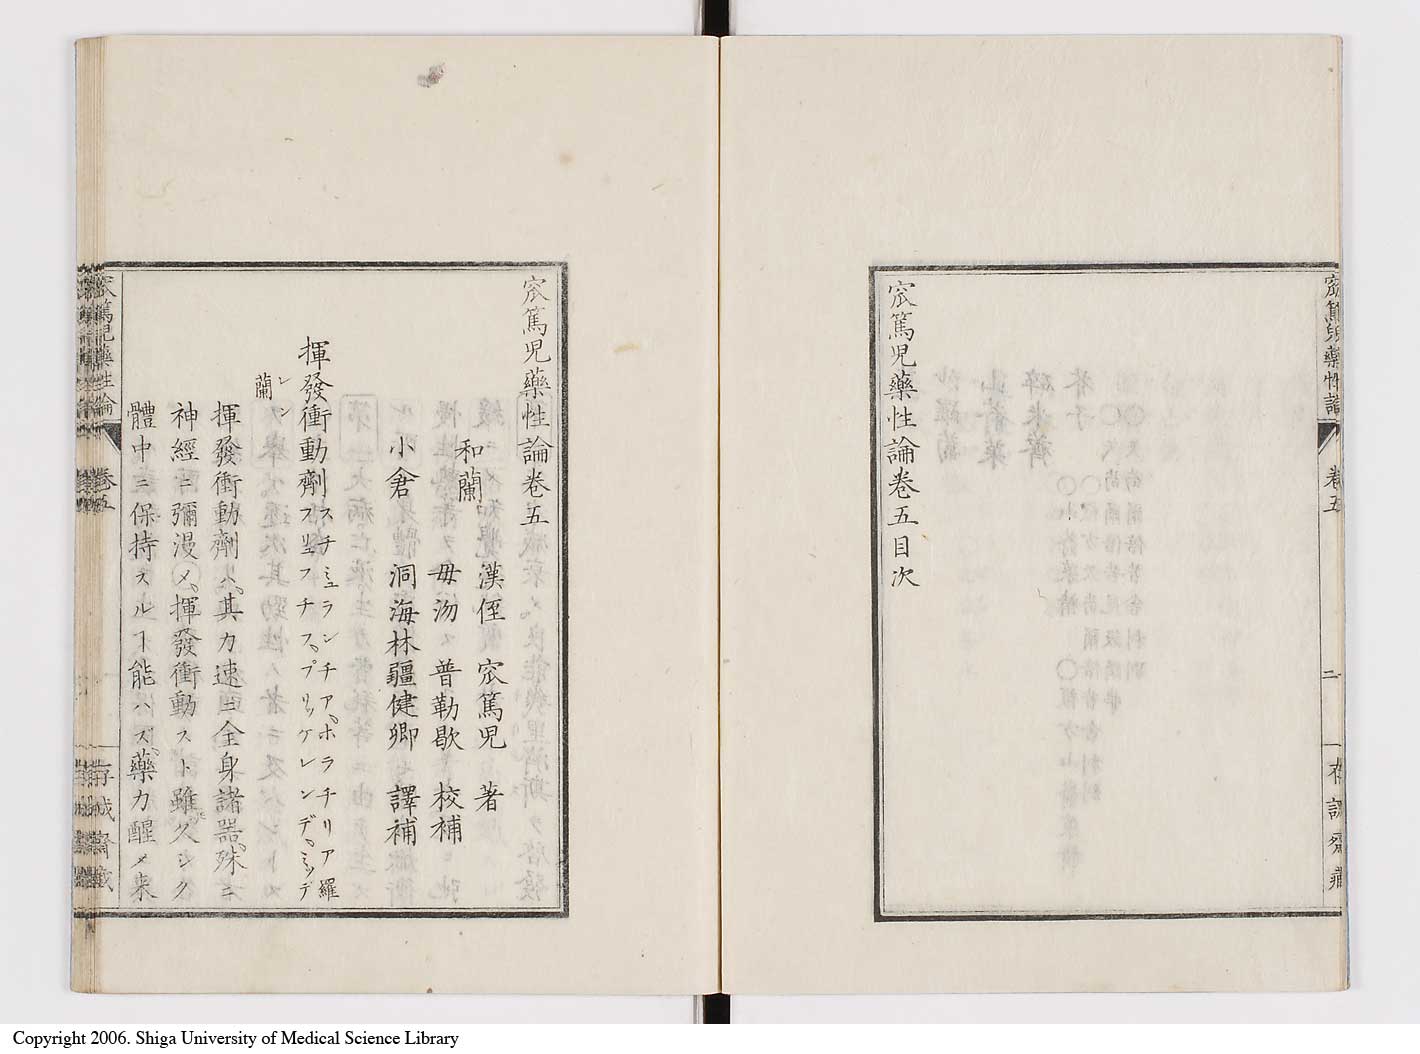 窊篤児藥性論卷五目次
窊篤児藥性論
卷五
二
窊篤児藥性論卷五
和蘭 漢侄 窊篤児 著
毋沕 普勒歇 校補
小倉 洞海林彊健卿 譯補
揮發衝動劑 スチミュランチア、ホラチリア羅 フルフチフ、プリッケレンデ、ミッデ
レン 蘭
揮發衝動劑ハ、其力速ニ全身諸器、殊ニ
神經ニ彌漫〆、揮發衝動スト雖久シク
體中ニ保持スルヿ能ハズ、藥力醒メ来
窊篤児藥性論
卷五
Copyright 2006. Shiga University of Medical Science Library